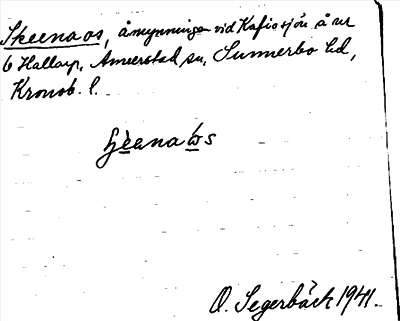 Skeenaos, åmynningen vid Kafiosjön å nr
6 Hallarp, Annerstad sn, Sunnerbo hd,
Kronob. l.
O. Segerbäck 1941.